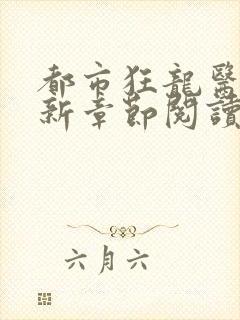 都市狂龍醫
新章節閱讀
六月六